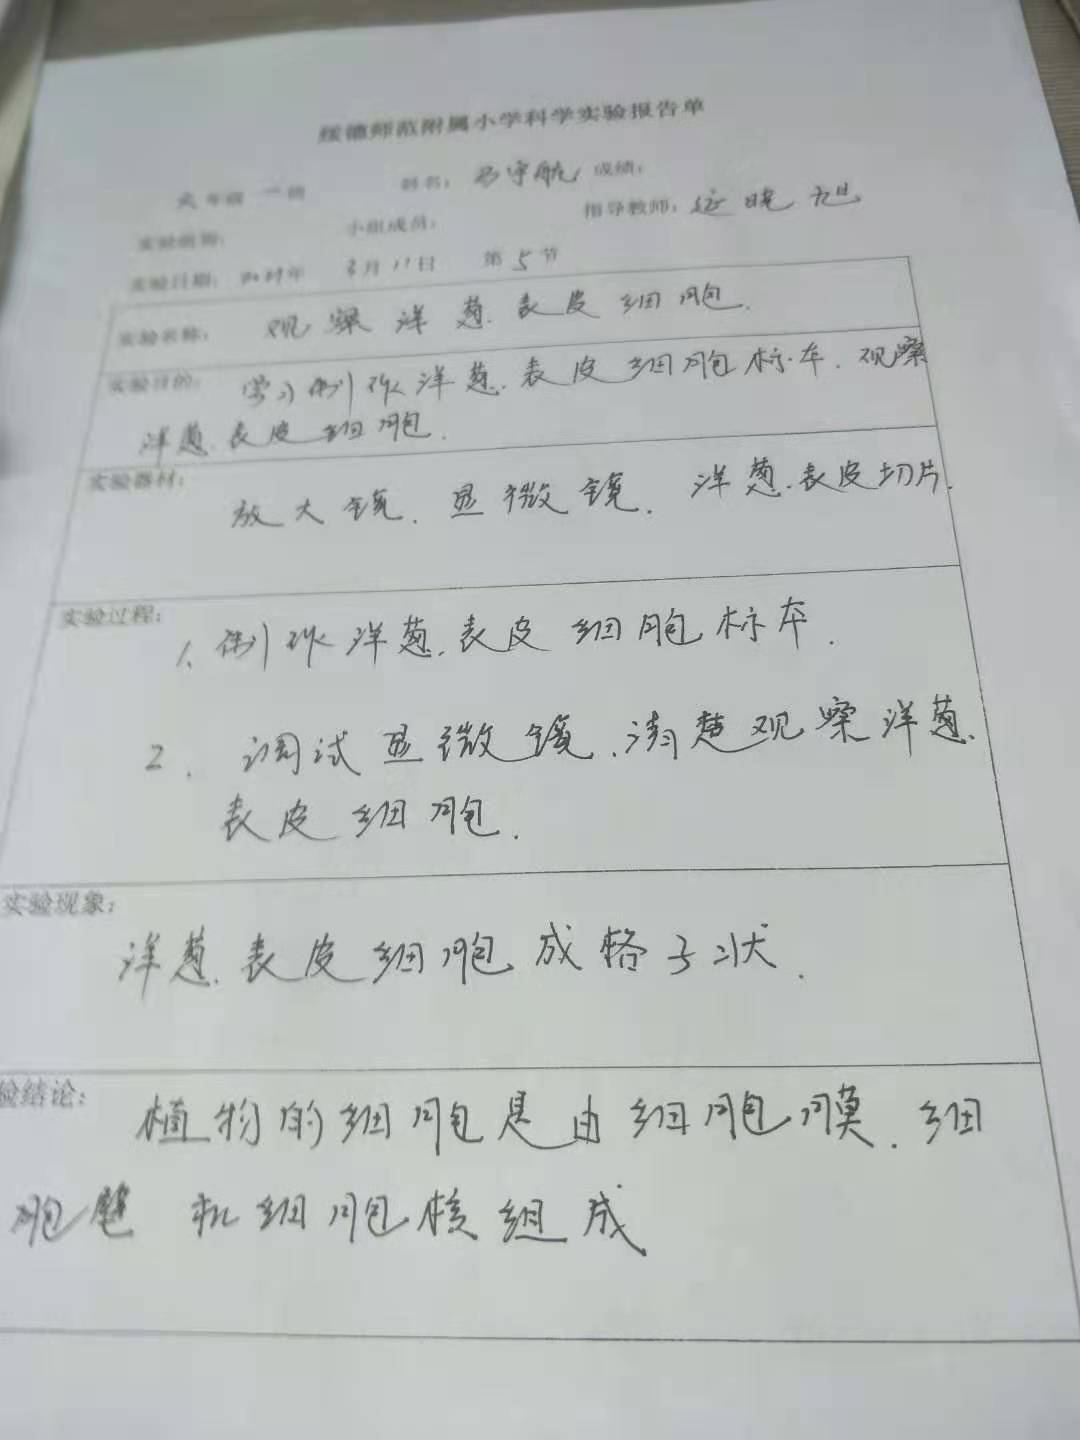 绥德师范附属小学科学实验报告单
年级 一班 姓名： 宇航 成绩：
实验组别： 小组成员： 指导教师： 延晓旭
实验日期： 年 3月11日 第5节
实验名称： 观察洋葱表皮细胞.
实验目的： 学习制作洋葱表皮细胞标本. 观察
洋葱表皮细胞.
实验器材：
放大镜. 显微镜. 洋葱表皮切片.
实验过程：
1、制作洋葱表皮细胞标本.
2. 调试显微镜.清楚观察洋葱
表皮细胞.
实验现象：
洋葱表皮细胞成格子状.
验结论：
植物的细胞是由细胞膜.细
胞壁 和细胞核组成